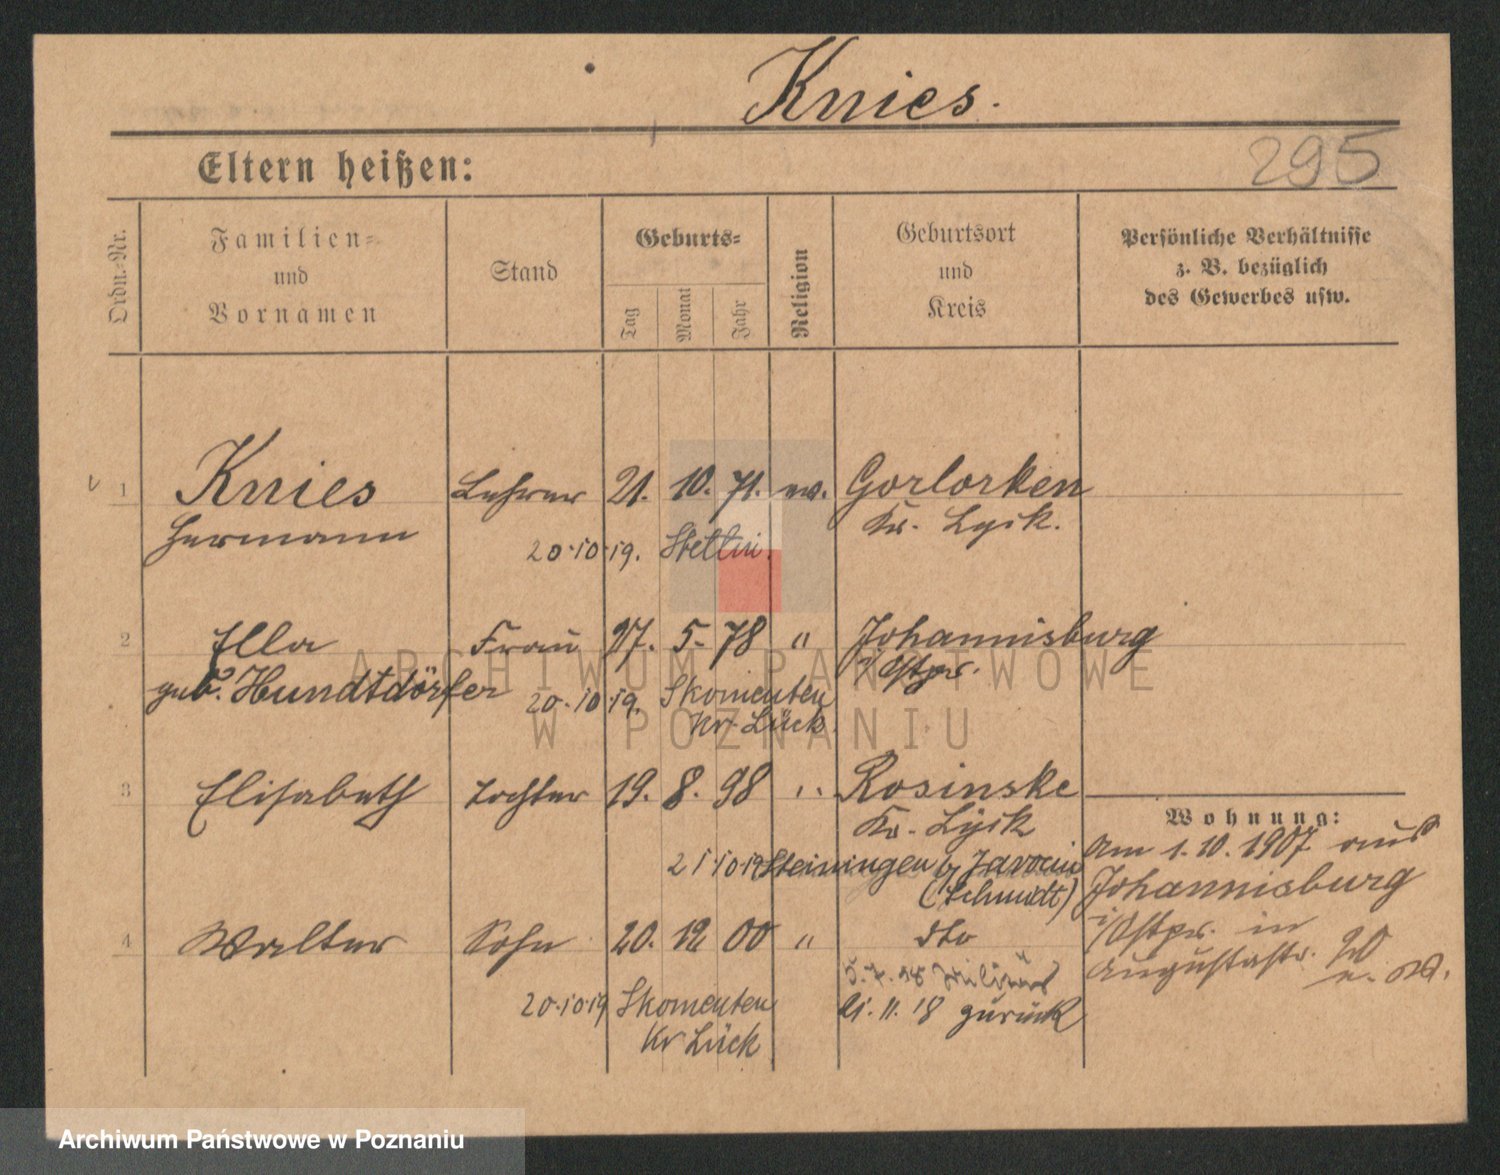 Knies.
295
Eltern heißen:
Ordn.-Nr.
Familien-
und
Vornamen
Stand
Geburts-
Tag
Monat
Jahr
Religion
Geburtsort
und
Kreis
Persönliche Verhältnisse
z. B. bezüglich
des Gewerbes usw.
1 Knies Lehrer 21. 10. 71. ev. Gorlorken
Hermann Kr. Lyck.
20.10.19. Stettin.
2 Ella Frau 27. 5. 78 " Johannisburg
geb. Hundtdörfer i/Ostpr.
20.10.19. Skomenten
Kr. Lück.
3 Elisabeth Tochter 19. 8. 98 " Rosinske
Kr. Lyck
21.10.19 Steiningen b. Jarocin
(Schmidt)
4 Walter Sohn 20. 12. 00 " dto
5.7.18 Militär
21.11.18 zurück
20.10.19 Skomenten
Kr Lück
Wohnung:
Am 1.10.1907 aus
Johannisburg
i/Ostpr. in
Augustastr. 20
ARCHIWUM PAŃSTWOWE
W POZNANIU
Archiwum Państwowe w Poznaniu